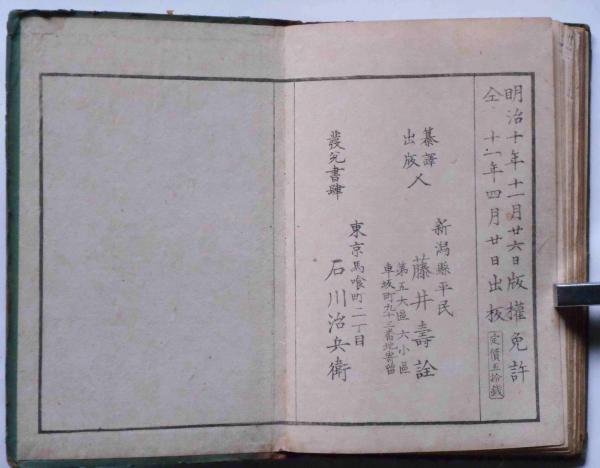 明治十年十一月廿六日版權免許
仝 十一年四月廿日出板
定價五拾錢
纂譯
出版
人
新潟縣平民
藤井壽詮
第五大區六小區
車坂町九十三番地寄留
發兌書肆
東京馬喰町二丁目
石川治兵衛